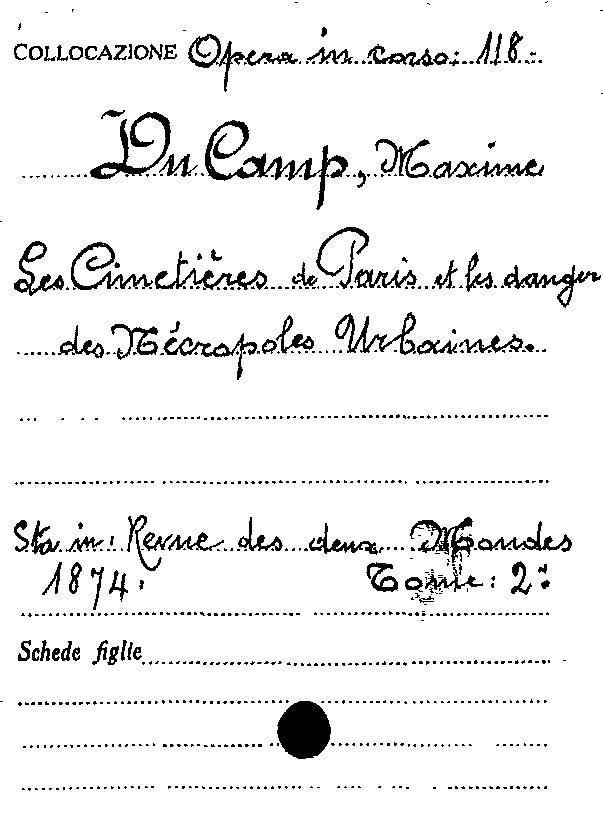 COLLOCAZIONE Opera in corso: 118.
Du Camp, Maxime
Les Cimetières de Paris et les danger
des Nécropoles Urbaines.
Sta in: Revue des deux Mondes
1874. Tome: 2º
Schede figlie